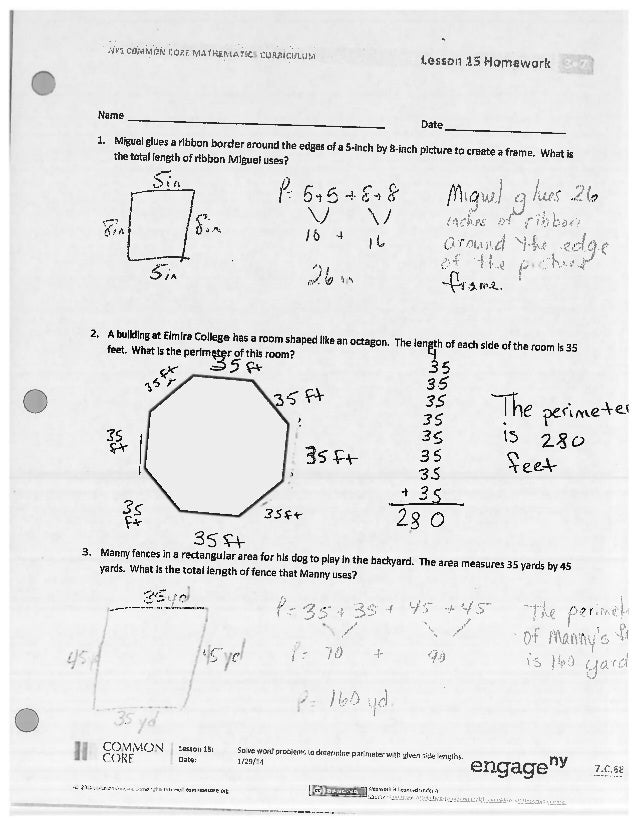 NYS COMMON CORE MATHEMATICS CURRICULUM
Lesson 15 Homework 3•7
Name
Date
1. Miguel glues a ribbon border around the edges of a 5-inch by 8-inch picture to create a frame. What is
the total length of ribbon Miguel uses?
5in
8in
8in
5in
P= 5+5+8+8
10 + 16
26 in
Miguel glues 26
inches of ribbon
around the edge
of the picture
frame.
2. A building at Elmira College has a room shaped like an octagon. The length of each side of the room is 35
feet. What is the perimeter of this room?
35 ft
35 ft
35 ft
35 ft
35 ft
35 ft
35 ft
35 ft
4
35
35
35
35
35
35
35
+ 35
280
The perimeter
is 280
feet
3. Manny fences in a rectangular area for his dog to play in the backyard. The area measures 35 yards by 45
yards. What is the total length of fence that Manny uses?
35 yd
45
45 yd
35 yd
P= 35 + 35 + 45 + 45
P= 70 + 90
P= 160 yd.
The
of Manny's
is 160
COMMON
CORE
Lesson 15:
Date:
Solve word problems to determine perimeter with given side lengths.
1/29/14
engage ny
7.C.68